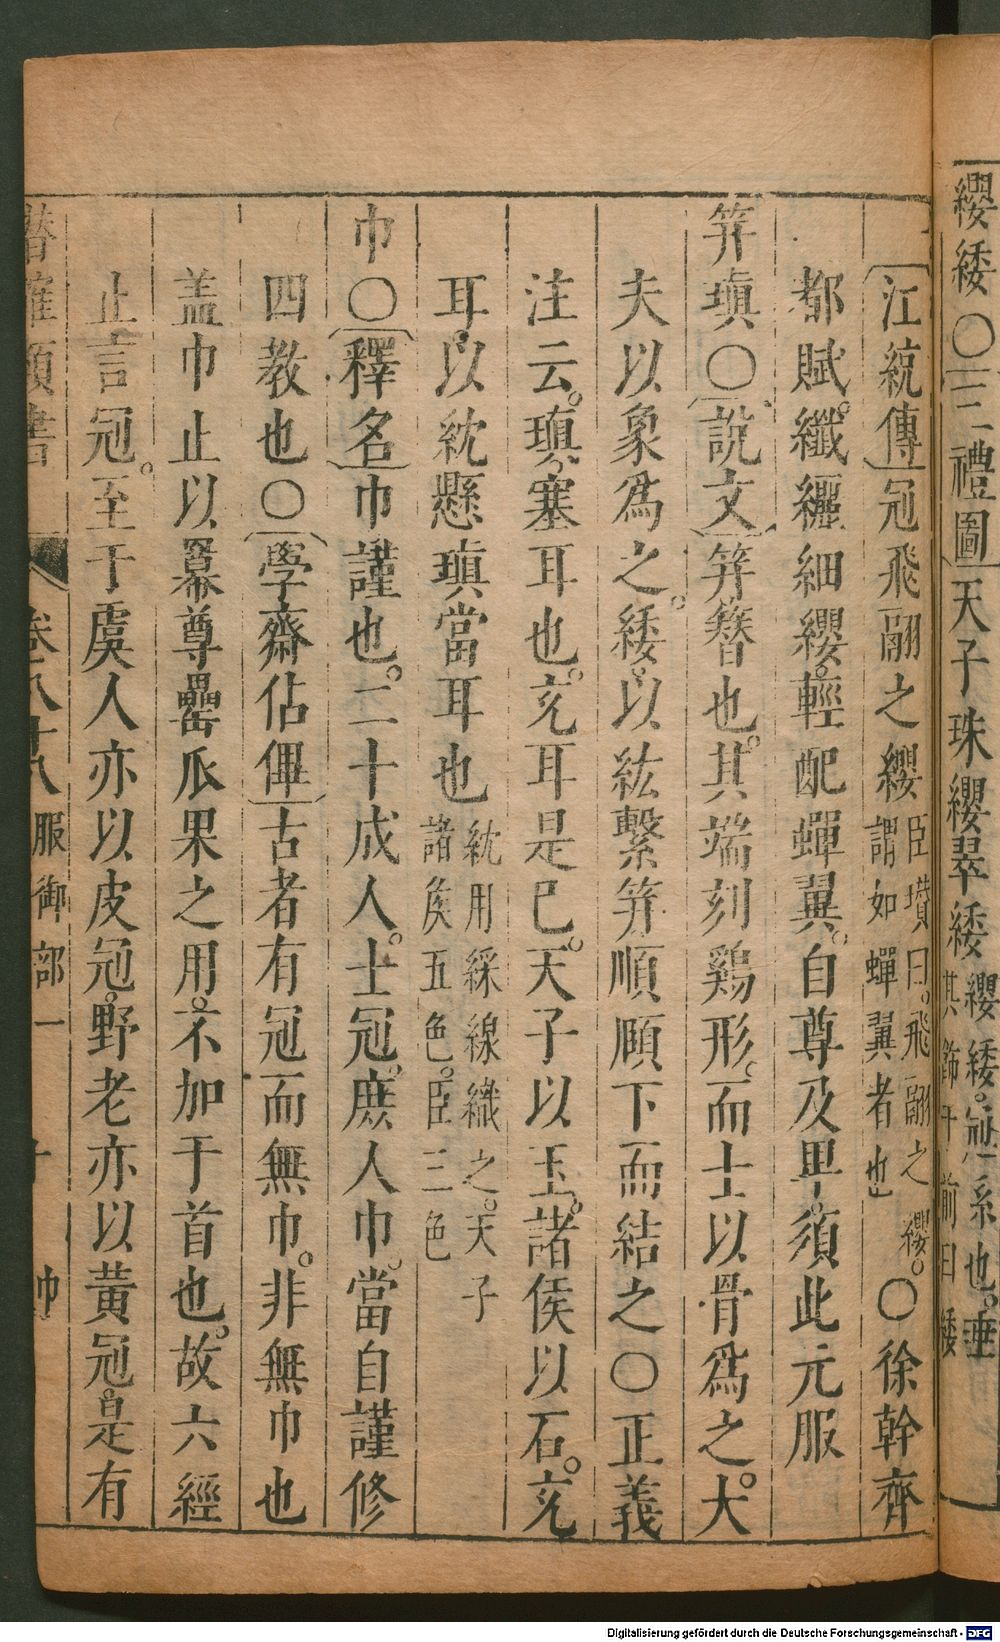 纓緌○三禮圖天子珠纓翠緌纓緌冠系也垂其飾于前曰緌
江統傳冠飛翮之纓臣瓚曰飛翮之纓謂如蟬翼者也○徐幹齊
都賦纖纚細纓輕配蟬翼自尊及卑須此元服
笄瑱○說文笄簪也其端刻鷄形而士以骨爲之大
夫以象爲之緌以紘繫笄順頤下而結之○正義
注云瑱塞耳也充耳是已天子以玉諸侯以石充
耳以紞懸瑱當耳也紞用綵線織之天子諸矦五色臣三色
巾○釋名巾謹也二十成人士冠庶人巾當自謹修
四教也○學齋佔俾古者有冠而無巾非無巾也
盖巾止以羃尊罍瓜果之用不加于首也故六經
止言冠至于虞人亦以皮冠野老亦以黃冠是有
潛確類書 卷八十八 服御部一
Digitalisierung gefördert durch die Deutsche Forschungsgemeinschaft - DFG